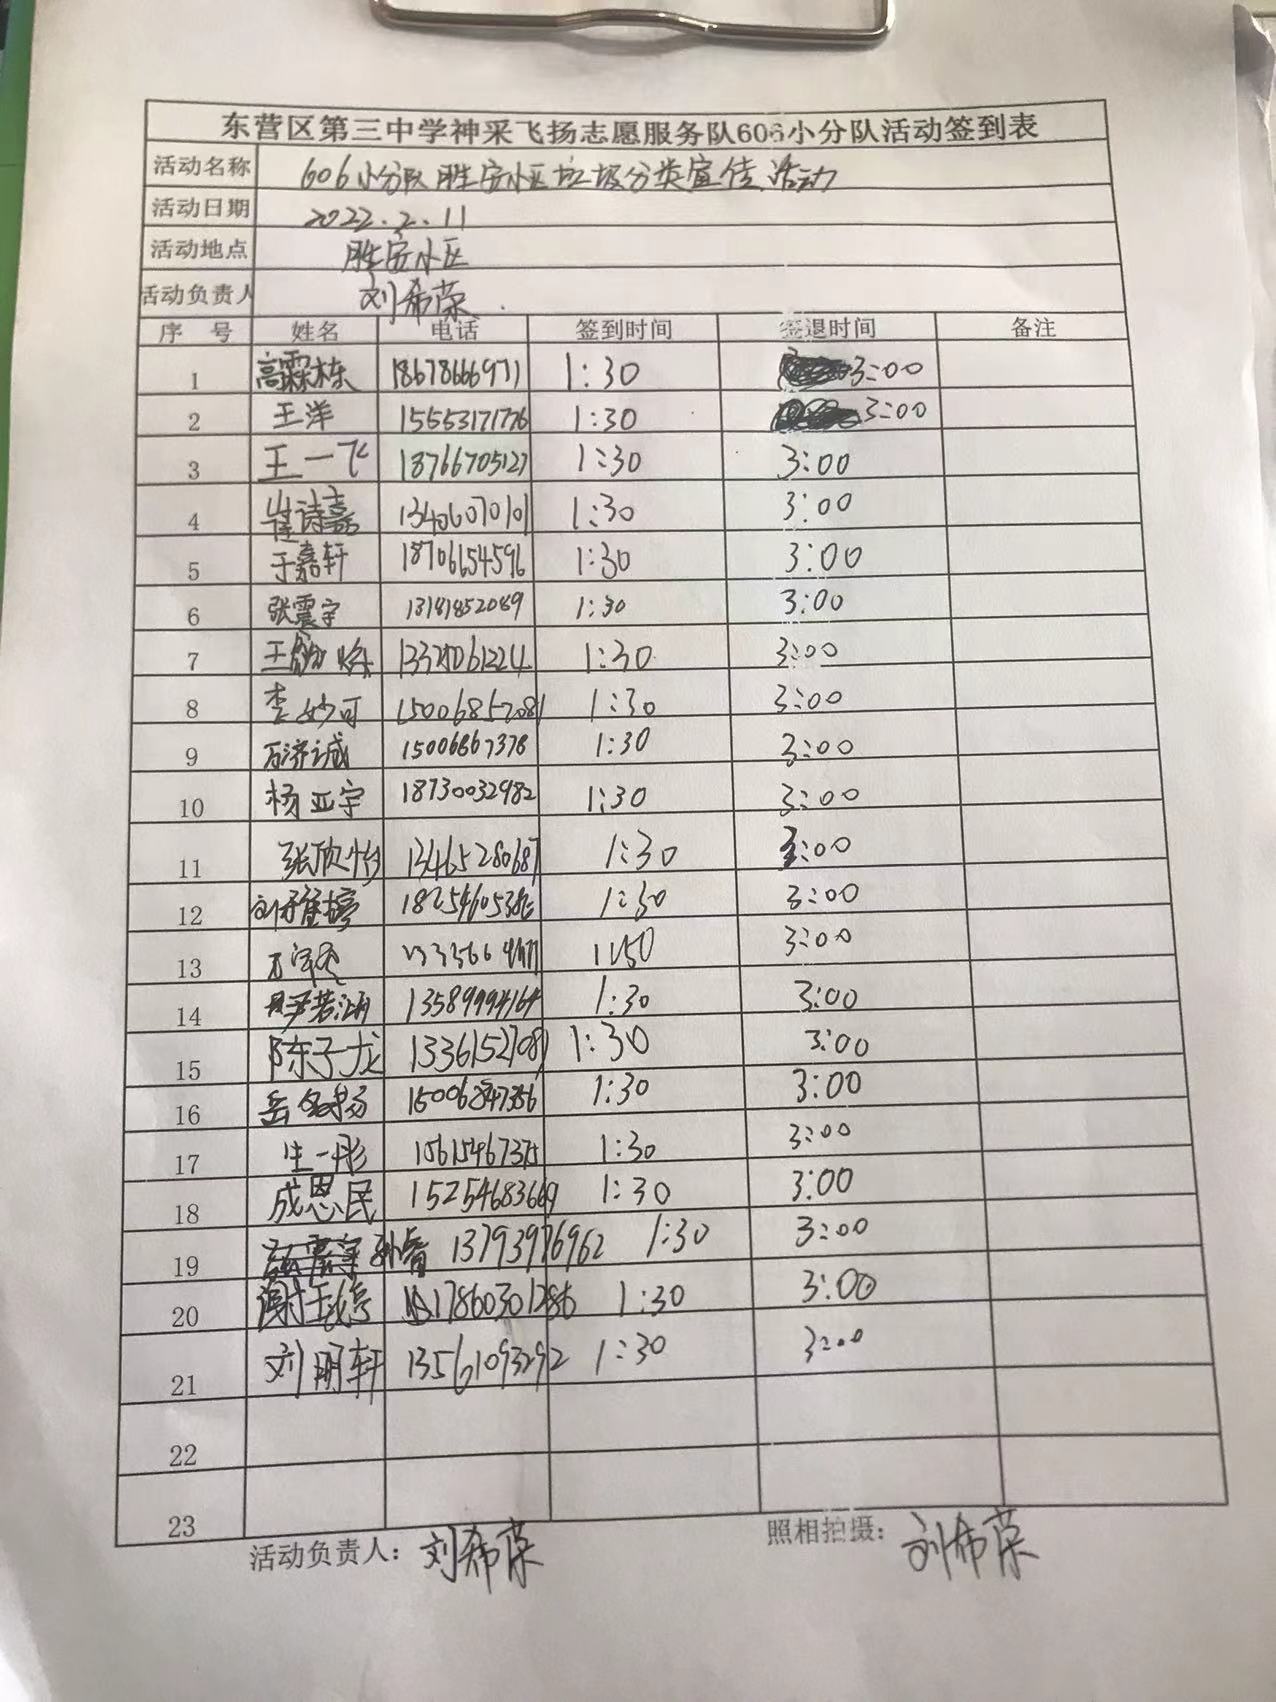 东营区第三中学神采飞扬志愿服务队606小分队活动签到表
活动名称 606小分队胜安小区垃圾分类宣传活动
活动日期 2022.2.11
活动地点 胜安小区
活动负责人 刘希荣
序号 姓名 电话 签到时间 签退时间 备注
1 高霖栋 18678666971 1:30 3:00
2 王洋 15553171776 1:30 3:00
3 王一飞 18766705127 1:30 3:00
4 崔诗嘉 13406070101 1:30 3:00
5 于嘉轩 18706654596 1:30 3:00
6 张震宇 13181852089 1:30 3:00
7 1:30 3:00
8 李妙可 15006852081 1:30 3:00
9 万济诚 15006867378 1:30 3:00
10 杨亚宇 18730032982 1:30 3:00
11 张欣怡 13465280687 1:30 3:00
12 刘雅婷 1:30 3:00
13 3:00
14 13589994164 1:30 3:00
15 陈子龙 13361527081 1:30 3:00
16 1:30 3:00
17 生一彤 15615467375 1:30 3:00
18 成恩民 15254683669 1:30 3:00
19 孙睿 13793976962 1:30 3:00
20 谢玉婷 17860301286 1:30 3:00
21 刘明轩 13561093292 1:30 3:00
22
23
活动负责人：刘希荣 照相拍摄：刘希荣